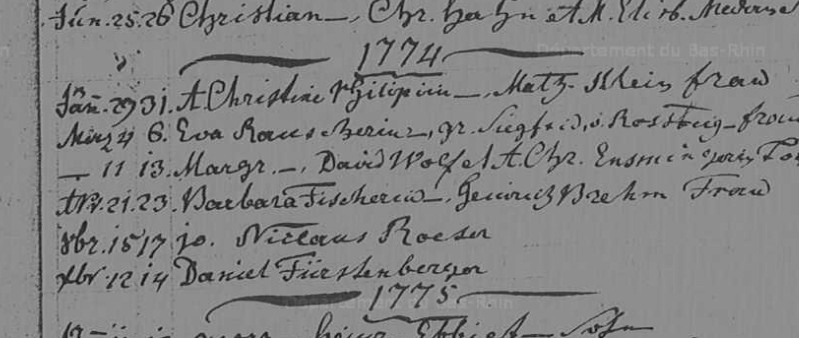 Jun. 25 26 Christian –, Chr. Hahn et M. Elisb.
1774
Jan. 29 31. A Christine Philipin –, Math. Klein frau
Département du Bas-Rhin
März 4 6. Eva –, gr. Siegfrid,
– 11 13. Margr. –, David Wolf et A. Chr.
Apr. 21. 23. Barbara Fischerin –, Heinrich Brehm Frau
8br. 15 17 jo. Niclaus Roeser
xbr. 12 14 Daniel Fürstenberger
1775
Bas-Rhin
Sohn